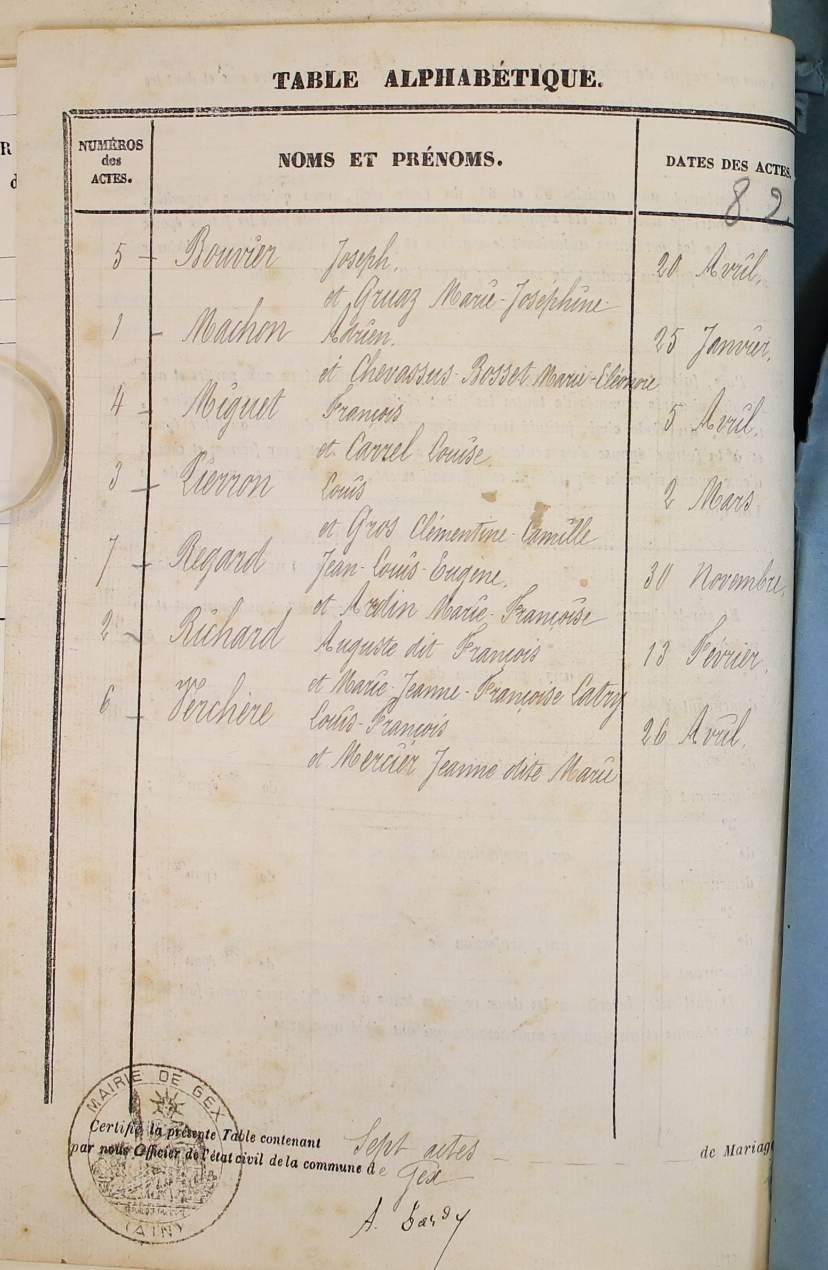 TABLE ALPHABÉTIQUE.
NUMÉROS des ACTES. NOMS ET PRÉNOMS. DATES DES ACTES.
82
5 - Bouvier Joseph. 20 Avril.
et Gruaz Marie-Joséphine
1 - Machon Adrien. 25 Janvier.
et Chevassus-Bosset Marie-Eléonore
4 - Miguet François 5 Avril.
et Carrel Louise
3 - Pierron Louis 2 Mars
et Gros Clémentine-Camille
7 - Regard Jean-Louis-Eugène. 30 Novembre.
et Ardin Marie-Françoise
2 - Richard Auguste dit François 13 Février.
et Marie-Jeanne-Françoise Catry
6 - Verchère Louis-François 26 Avril.
et Mercier Jeanne dite Marie
MAIRIE DE GEX
(AIN)
Certifié la présente Table contenant Sept actes de Mariage
par nous Officier de l'état civil de la commune de Gex